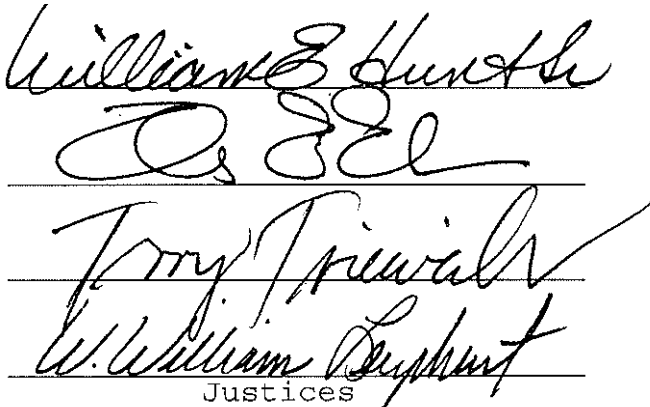 William E Hunt Sr
Terry Trieweiler
W. William Leaphart
Justices